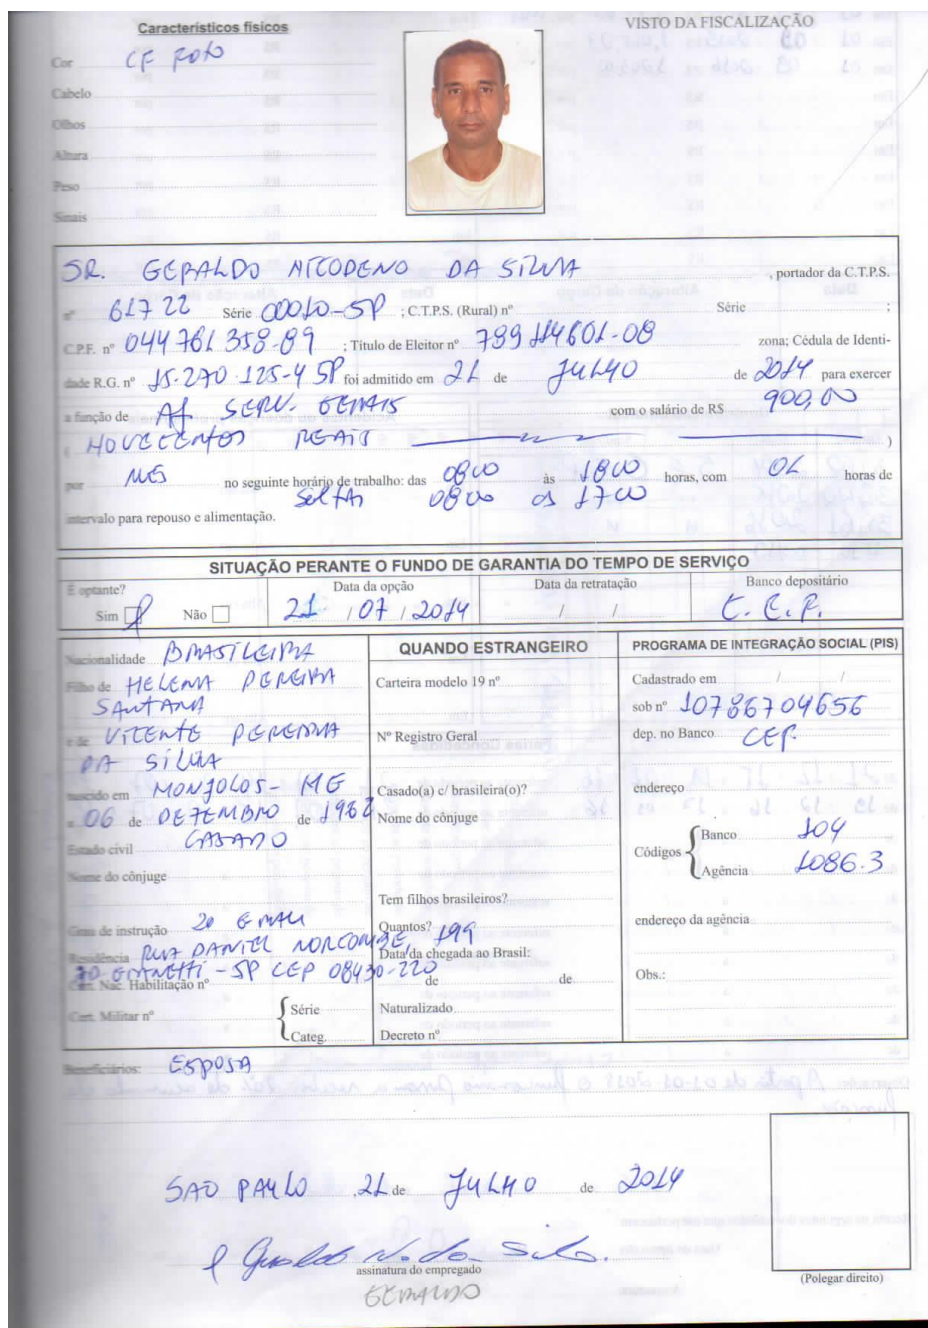 Característicos físicos
VISTO DA FISCALIZAÇÃO
Cor
Cabelo
Olhos
Altura
Peso
Sinais
SR. GERALDO NICODENO DA SILVA , portador da C.T.P.S.
nº 61722 Série 00010-SP ; C.T.P.S. (Rural) nº Série ;
C.P.F. nº 044 761 358-89 ; Título de Eleitor nº 789114601-08 zona; Cédula de Identi-
dade R.G. nº 15-270 125-4 SP foi admitido em 21 de JULHO de 2014 para exercer
a função de SERV. GERAIS com o salário de R$ 900,00
( NOVECENTOS REAIS )
por MES no seguinte horário de trabalho: das 0800 às 1800 horas, com 01 horas de
SEXTA 0800 as 1700
intervalo para repouso e alimentação.
SITUAÇÃO PERANTE O FUNDO DE GARANTIA DO TEMPO DE SERVIÇO
É optante? Data da opção Data da retratação Banco depositário
Sim Não 21 / 07 / 2014 / / C.E.F.
Nacionalidade BRASILEIRA
Filho de HELENA PEREIRA
SANTANA
e de VICENTE PEREIRA
DA SILVA
nascido em MONJOLOS - MG
a 06 de DEZEMBRO de
Estado civil CASADO
Nome do cônjuge
Grau de instrução 2o GRAU
Residência RUA DANIEL 199
SP CEP 08430-220
Cart. Nac. Habilitação nº
Cert. Militar nº Série
Categ.
QUANDO ESTRANGEIRO
Carteira modelo 19 nº
Nº Registro Geral
Casado(a) c/ brasileira(o)?
Nome do cônjuge
Tem filhos brasileiros?
Quantos?
Data da chegada ao Brasil:
de de
Naturalizado
Decreto nº
PROGRAMA DE INTEGRAÇÃO SOCIAL (PIS)
Cadastrado em / /
sob nº 10786704656
dep. no Banco CEF.
endereço
Códigos Banco 104
Agência 1086.3
endereço da agência
Obs.:
Beneficiários: ESPOSA
SAO PAULO , 21 de JULHO de 2014
assinatura do empregado
GERALDO
(Polegar direito)